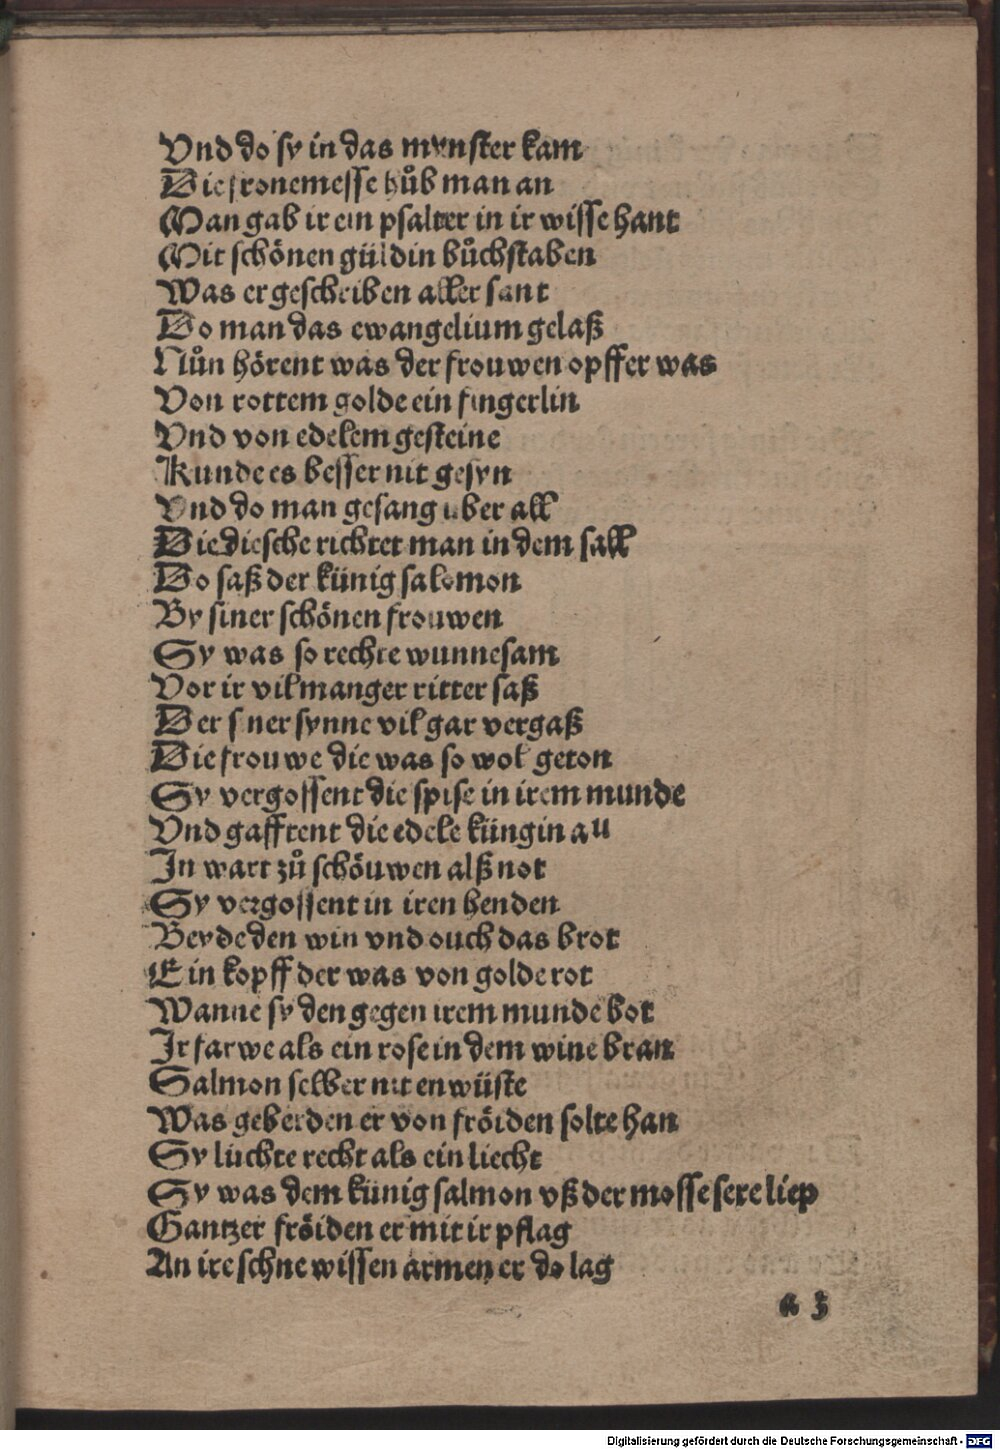 Vnd do sy in das mynster kam
Die fronemesse hůb man an
Man gab ir ein psalter in ir wisse hant
Mit schönen güldin bůchstaben
Was er geschriben aller sant
Do man das ewangelium gelaß
Nůn hörent was der frouwen opffer was
Von rottem golde ein fingerlin
Vnd von edelem gesteine
Kunde es besser nit gesyn
Vnd do man gesang uber all
Die diesche richtet man in dem sall
Do saß der künig salomon
By siner schönen frouwen
Sy was so rechte wunnesam
Vor ir vil manger ritter saß
Der siner synne vil gar vergaß
Die frouwe die was so wol geton
Sy vergossent die spise in irem munde
Vnd gafftent die edele küngin an
In wart zů schöuwen alß not
Sy vergossent in iren henden
Beyde den win vnd ouch das brot
Ein kopff der was von golde rot
Wanne sy den gegen irem munde bot
Ir farwe als ein rose in dem wine bran
Salmon selber nit enwüste
Was geberden er von fröiden solte han
Sy lüchte recht als ein liecht
Sy was dem künig salmon vß der mosse sere liep
Gantzer fröiden er mit ir pflag
An ire schne wissen armen er do lag
a 3
Digitalisierung gefördert durch die Deutsche Forschungsgemeinschaft - DFG